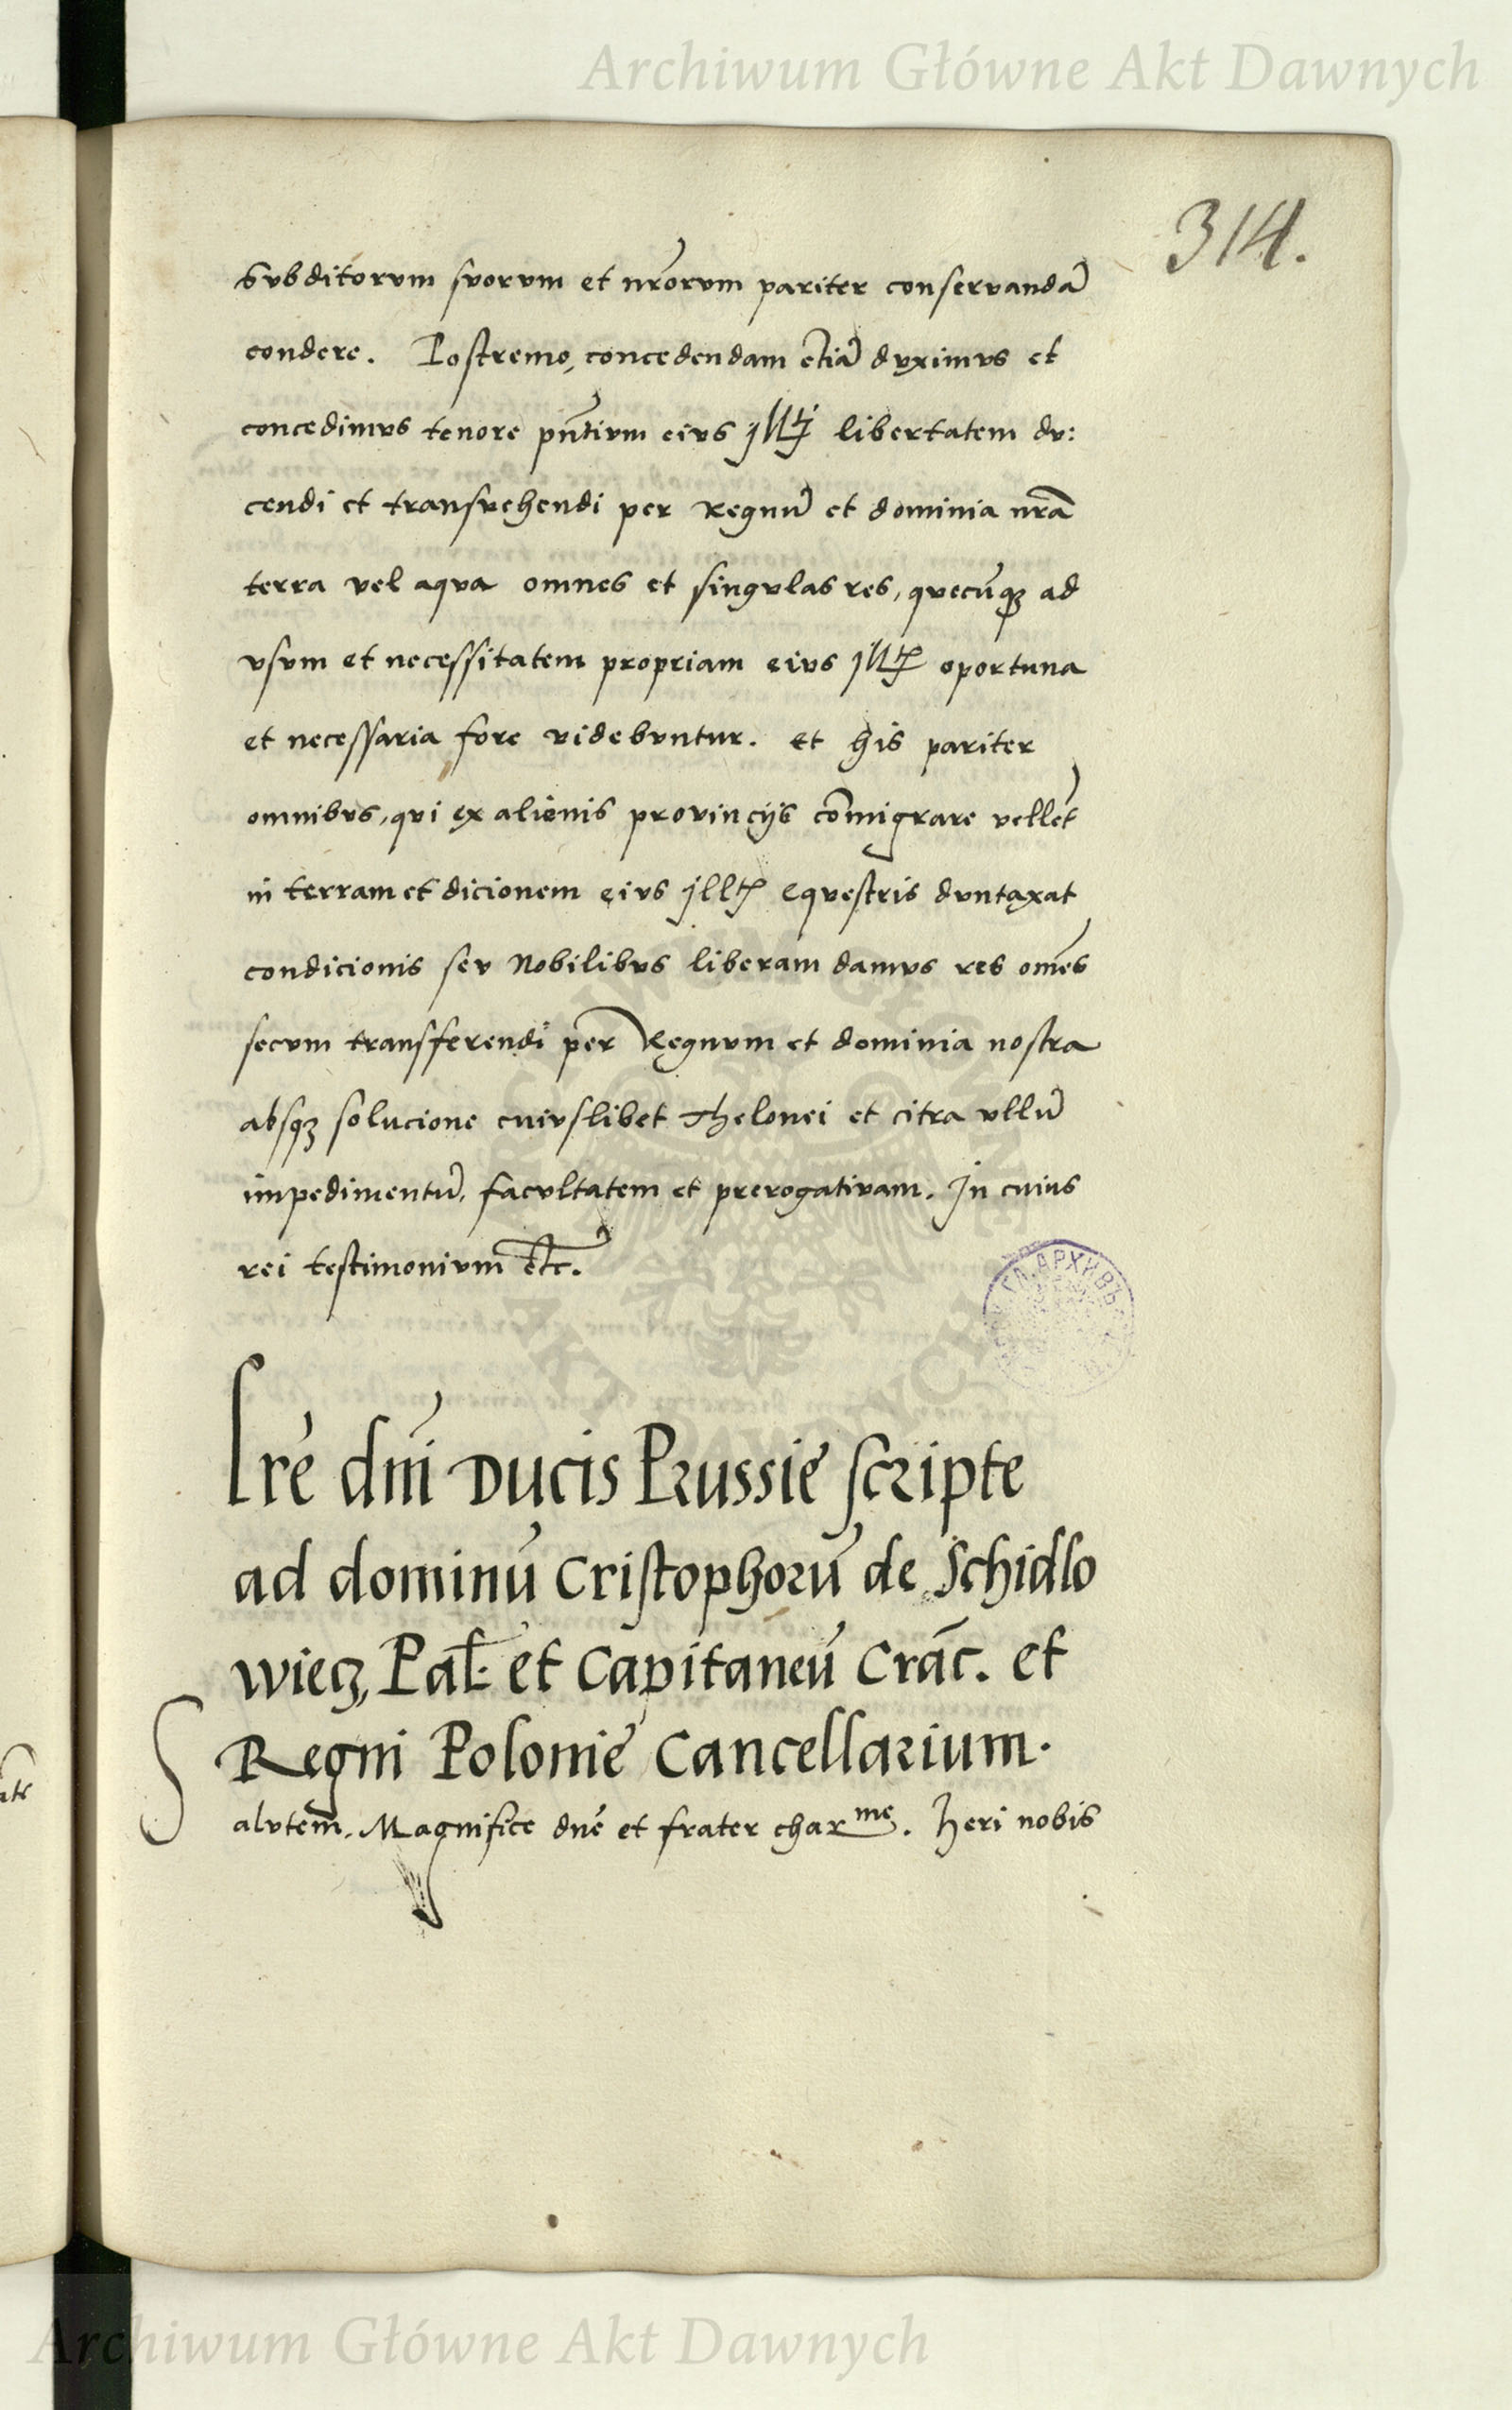 Archiwum Główne Akt Dawnych
314.
Svbditorvm svorvm et nr̄orvm pariter conservandā
condere. Postremo, concedendam etiā dvximvs et
concedimvs tenore pn̄tivm eivs jlltj libertatem dv:
cendi et transvehendi per regnū et dominia nr̄a
terra vel aqva omnes et singvlas res, qvecūqꝫ ad
vsvm et necessitatem propriam eivs jlltꝭ oportuna
et necessaria fore videbvntur. et his pariter
omnibvs, qvi ex alienis provincijs cōmigrare vellēt
in terram et dicionem eivs jlltꝭ eqvestris dvntaxat
condicionis sev Nobilibvs liberam damvs res om̄es
secvm transfferendi per Regnvm et dominia nostra
absqꝫ solucione cvivslibet thelonei et citra vllū
impedimentū, facvltatem et prerogativam. In cvius
rei testimonivm etc̄.
Lr̄e dn̄i Ducis Prussie scripte
ad dominū Cristophorū de Schidlo
wiecz, Pal. et Capitaneū Crac̄. et
Regni Polonie Cancellarium.
Salvtem. Magnifice dn̄e et frater charme. Heri nobis
Archiwum Główne Akt Dawnych